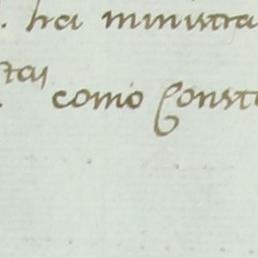 . hai ministra
tas como Const